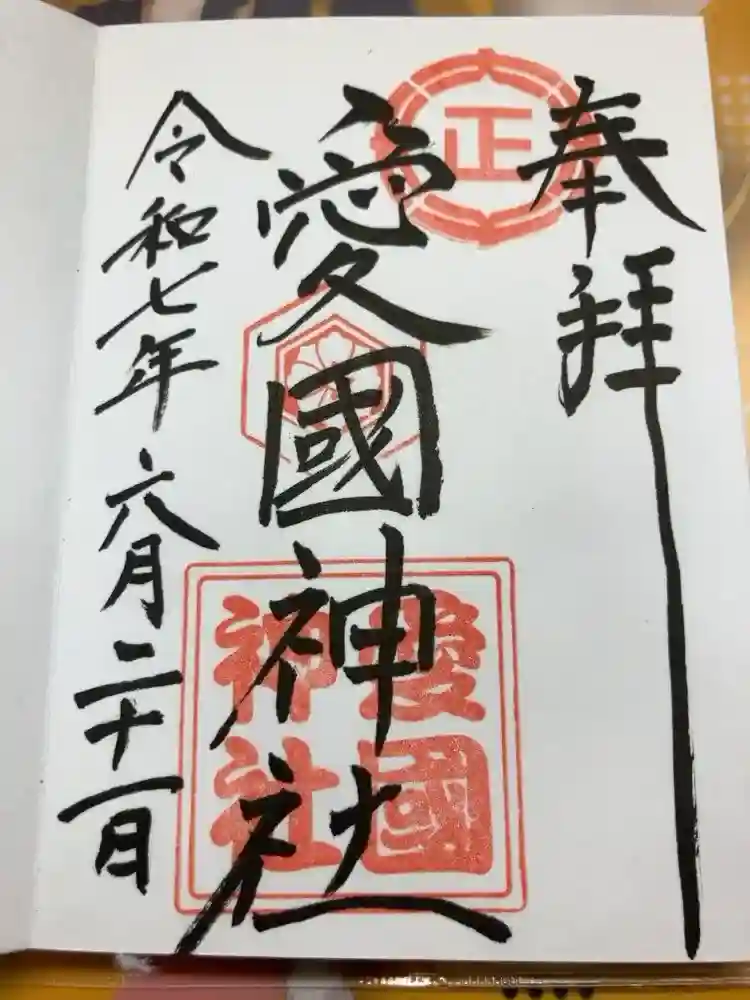 奉拝
正
愛國神社
愛國
神社
令和七年六月二十一日